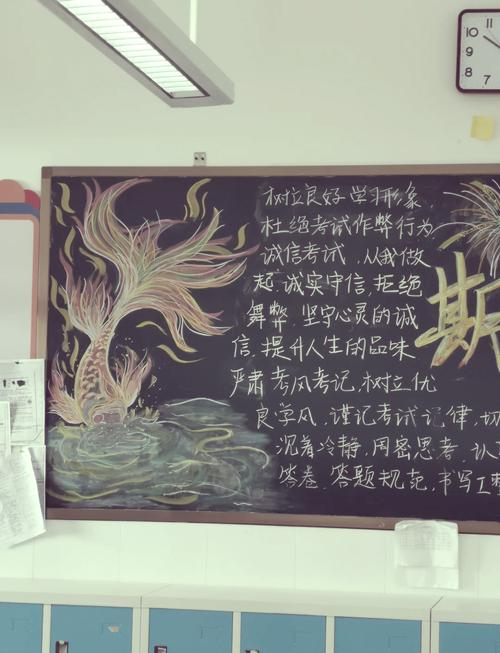 树立良好学习形象
杜绝考试作弊行为
诚信考试，从我做
起，诚实守信，拒绝
舞弊，坚守心灵的诚
信，提升人生的品味
严肃考风考记，树立优
良学风，谨记考试记律，切
沉着冷静，用密思考，认
答卷，答题规范，书写工整
期
11
10
9
8
7